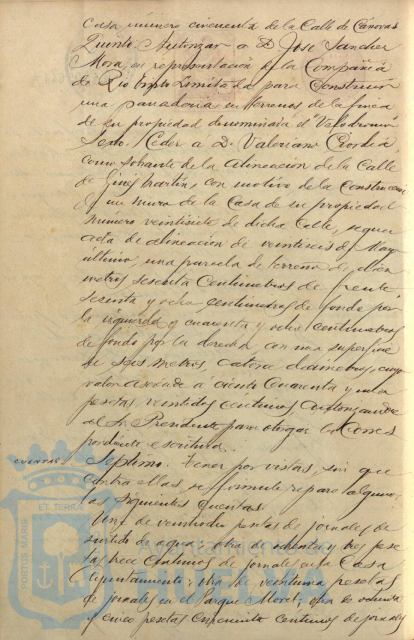 Casa número cincuenta de la Calle de Cánovas
Quinto. Autorizar a D. José Sánchez
Mora, en representación de la Compañía
de Rio Tinto Limitada para construir
una panadería en terrenos de la finca
de su propiedad denominada el "Velodromo
Sexto. Ceder a D. Valeriano
como sobrante de la alineación de la Calle
de Ginés Martín, con motivo de la construcción
de un muro de la Casa de su propiedad
número veintisiete de dicha Calle, según
acta de alineación de veintiseis de Mayo
último, una parcela de terreno de
metros sesenta centímetros de frente
sesenta y ocho centímetros de fondo por
la izquierda y cuarenta y ocho centímetros
de fondo por la derecha con una superficie
de seis metros, catorce decímetros, cuyo
valor asciende a ciento cuarenta y una
pesetas, veintidos céntimos autorizando
al Sr. Presidente para otorgar la corres
pondiente escritura.
cuentas
Septimo. Tener por vistas, sin que
contra ellas se formule reparo alguno,
las siguientes cuentas.
Una de veintiocho pesetas de jornales de
surtido de agua, otra de ochenta y tres pese
tas trece céntimos de jornales en la Casa
Ayuntamiento; otra de veintiuna pesetas
de jornales en el Parque Moret; otra de
y cinco pesetas cincuenta céntimos de jornales
ET TERRÆ
PORTUS MARIS
Ayuntamiento de